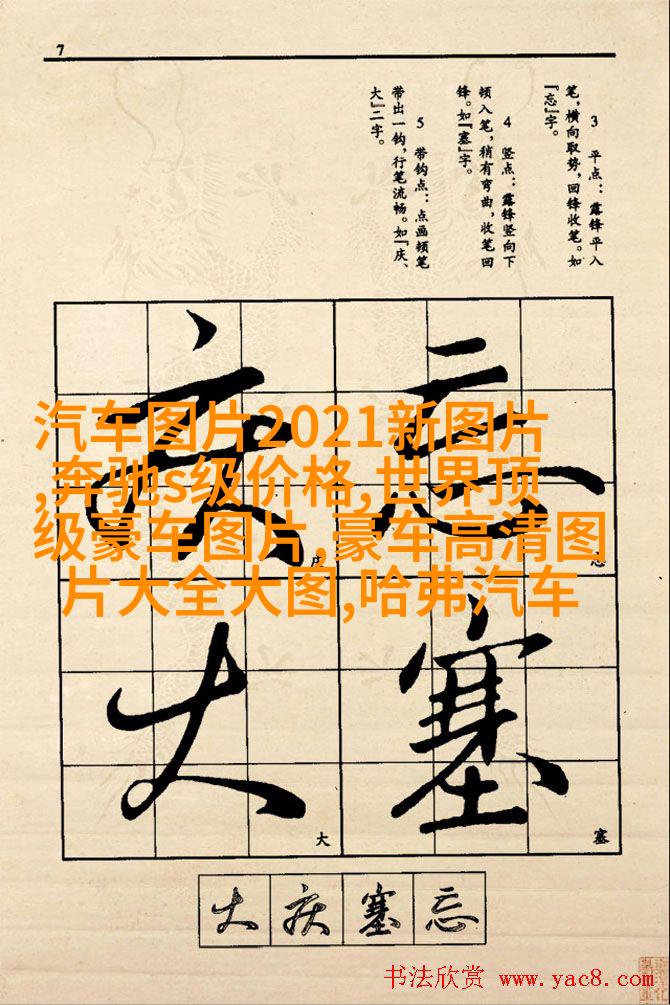 7
3 平点：露锋平入
笔，横向取势，回锋收笔。如
『忘』字。
4 竖点：露锋竖向下
顿入笔，稍有弯曲，收笔回
锋。如『塞』字。
5 带钩点：点画顿笔
带出一钩，行笔流畅。如『庆、
大』二字。
忘
忘
塞
塞
庆
庆
大
大
汽车图片2021新图片
,奔驰s级价格,世界顶
级豪车图片,豪车高清图
片大全大图,哈弗汽车
大 庆 塞 忘
书法欣赏 www.yac8.com